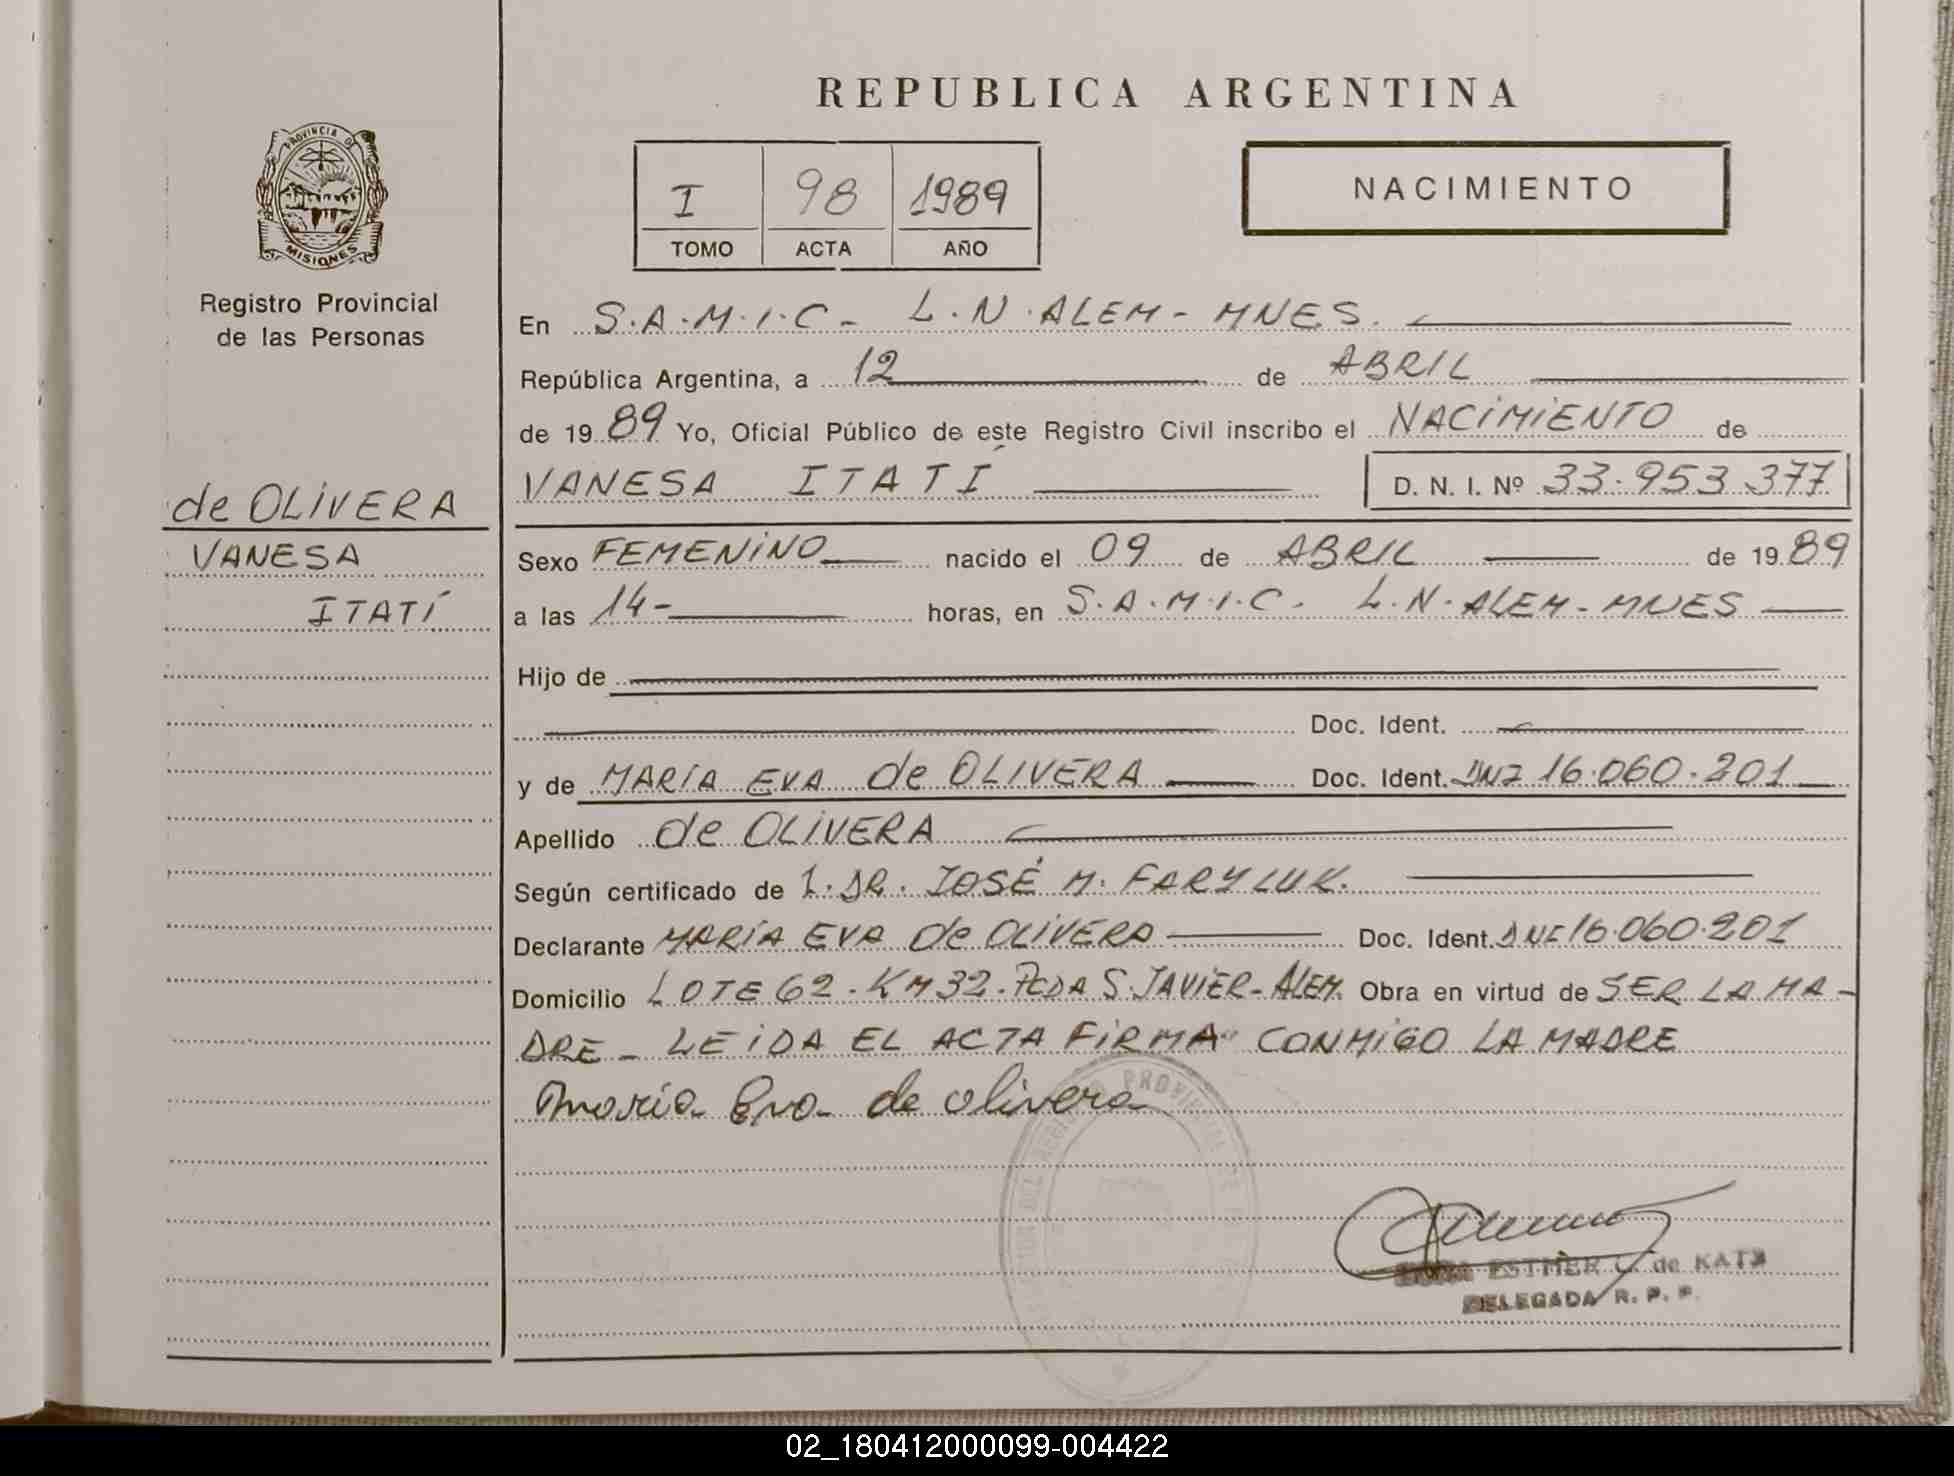 REPUBLICA ARGENTINA
PROVINCIA DE
MISIONES
Registro Provincial
de las Personas
I 98 1989
TOMO ACTA AÑO
NACIMIENTO
En S.A.M.I.C - L.N.ALEM - MNES.
República Argentina, a 12 de ABRIL
de 1989 Yo, Oficial Público de este Registro Civil inscribo el NACIMIENTO de
VANESA ITATÍ D. N. I. Nº 33.953.377
de OLIVERA
VANESA
ITATÍ
Sexo FEMENINO nacido el 09 de ABRIL de 1989
a las 14- horas, en S.A.M.I.C. L.N.ALEM - MNES
Hijo de
Doc. Ident.
y de MARÍA EVA de OLIVERA Doc. Ident. DNI 16.060.201
Apellido de OLIVERA
Según certificado de DR. JOSÉ M. FARYLUK.
Declarante MARÍA EVA de OLIVERA Doc. Ident. DNI 16.060.201
Domicilio LOTE 62 - KM 32 - PCDA S. JAVIER - ALEM. Obra en virtud de SER LA MA-
DRE - LEIDA EL ACTA FIRMA CONMIGO LA MADRE
María Eva de olivera
ESTHER de KATZ
DELEGADA R. P. P.
02_180412000099-004422